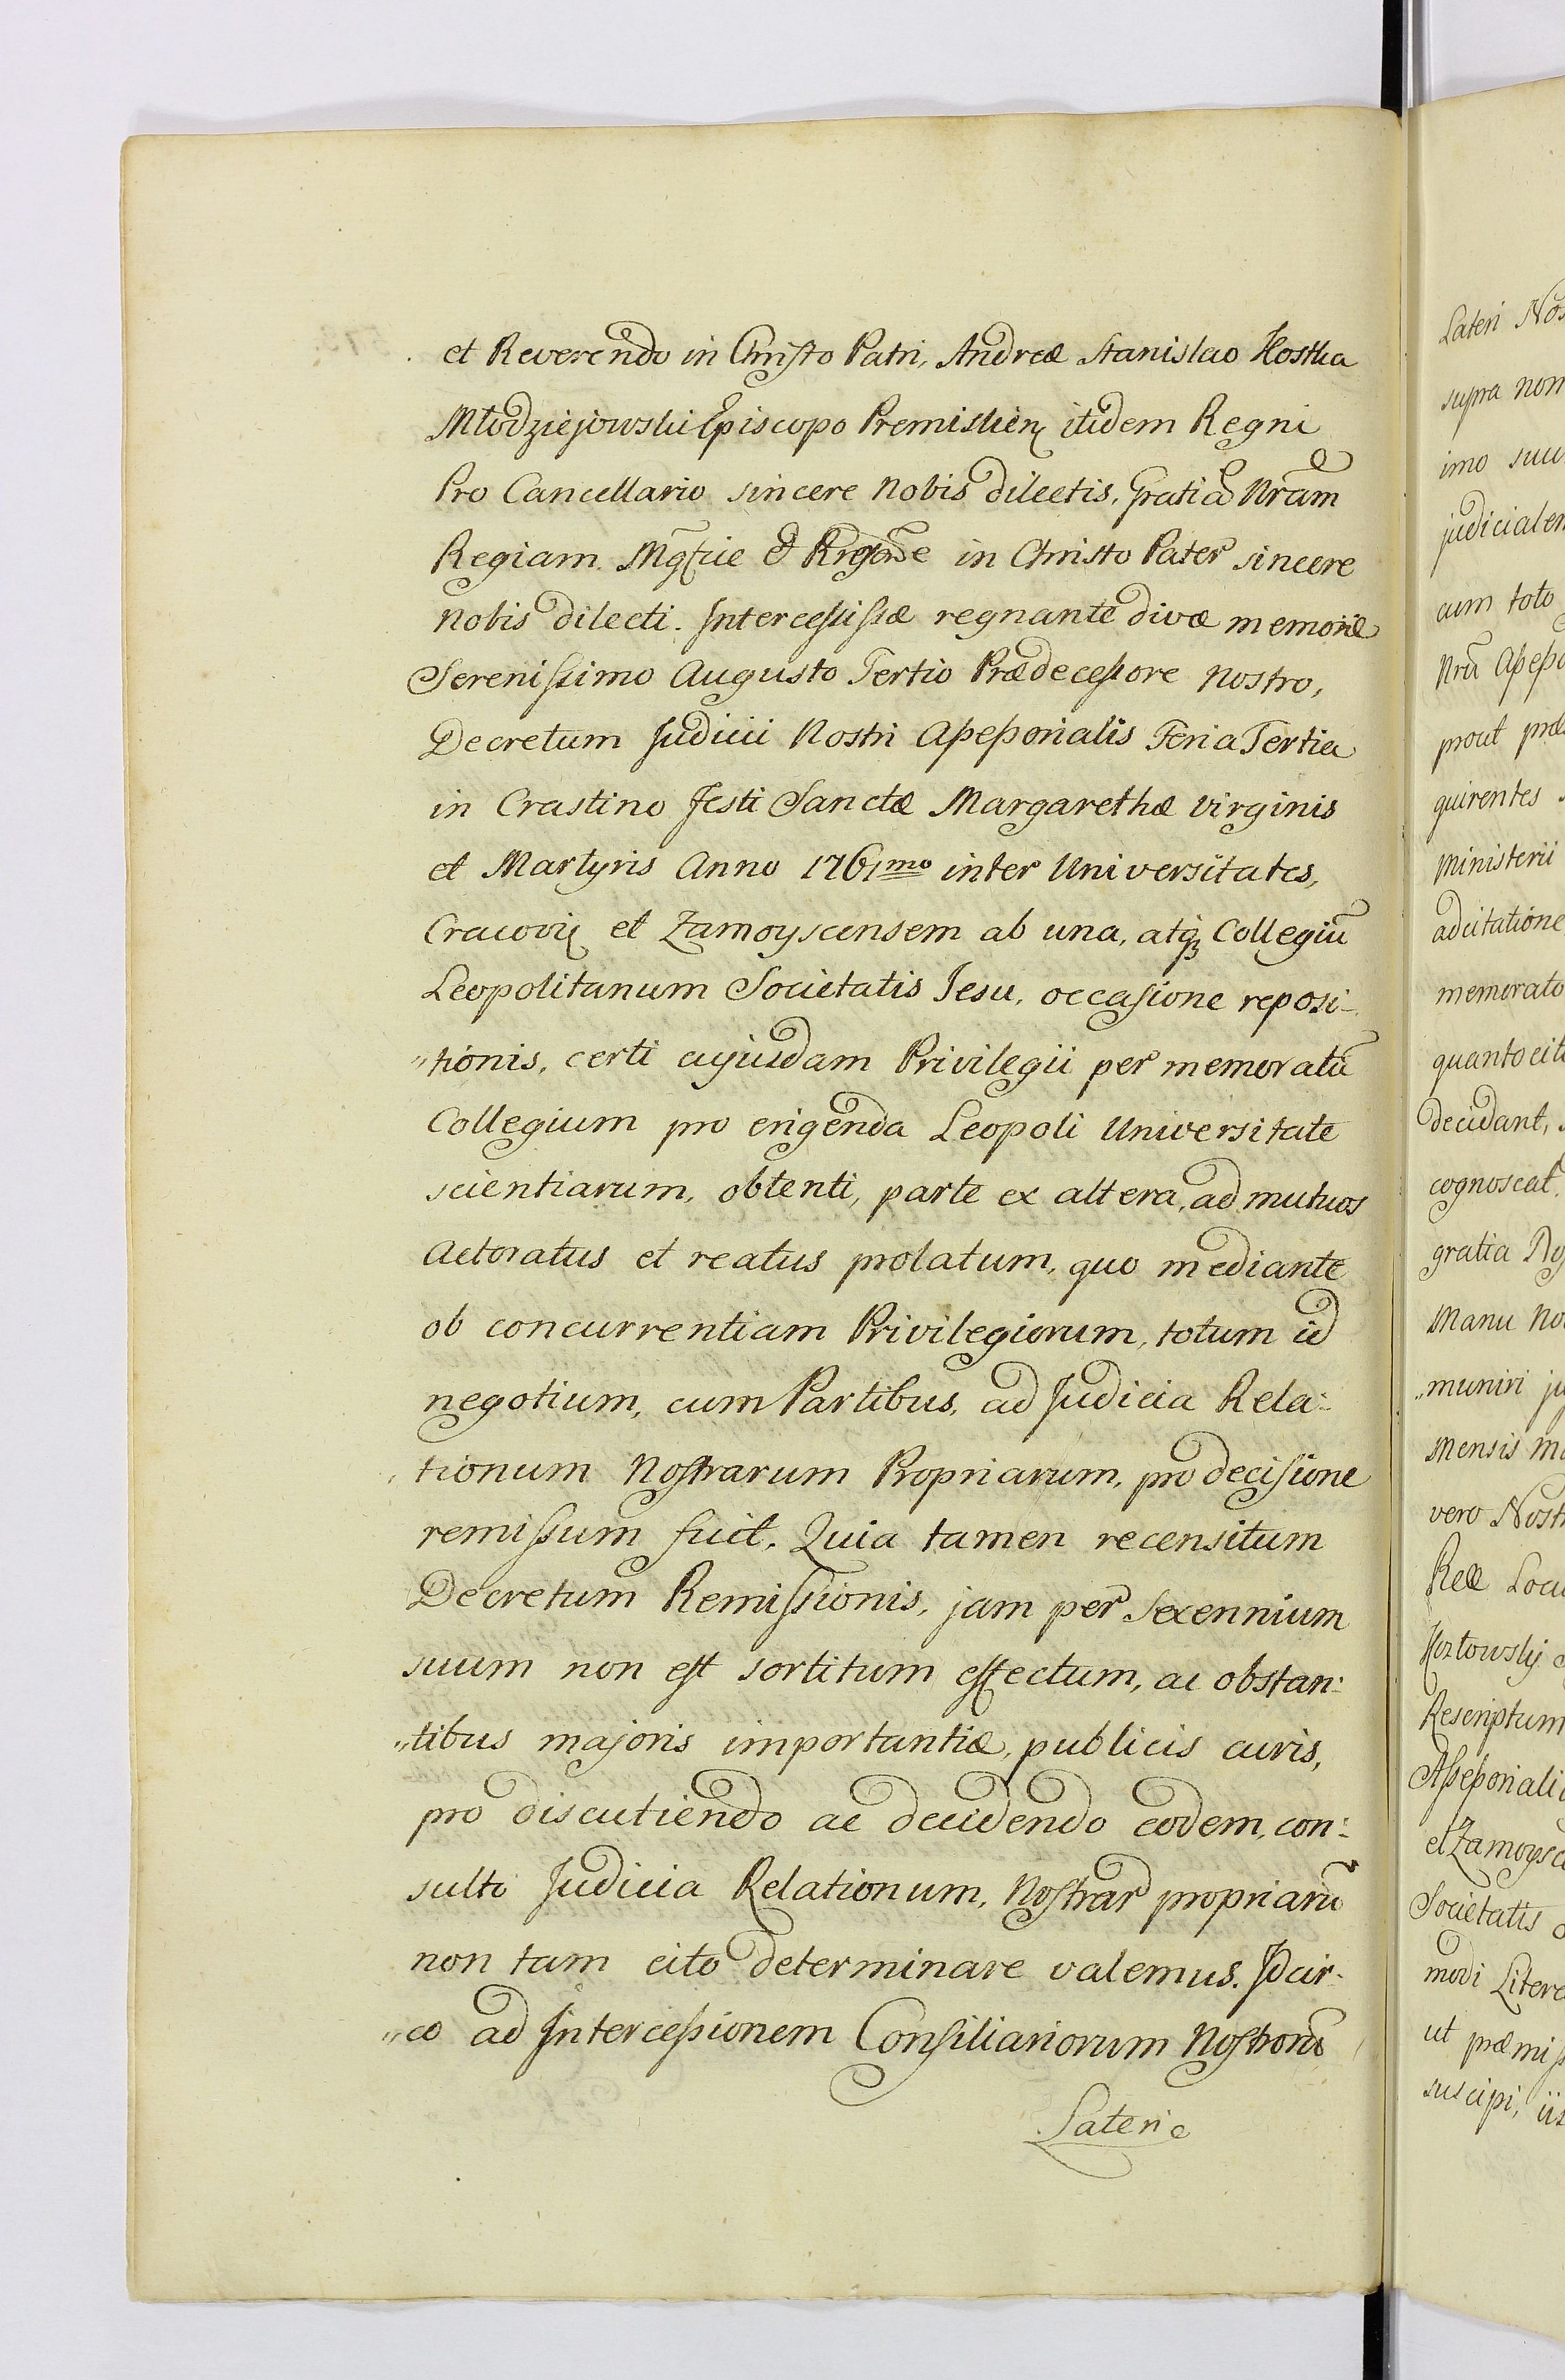 et Reverendo in Christo Patri, Andreæ Stanislao Kostka
Młodziejowski Episcopo Premislien itidem Regni
Pro Cancellario sincere nobis dilectis, Gratiã Nrãm
Regiam. in Christo Pater sincere
nobis dilecti. Intercessissæ regnante divæ memoriæ
Serenissimo Augusto Tertio Prædecessore nostro,
Decretum Judicii Nostri Assessorialis Feria Tertia
in Crastino Festi Sanctæ Margarethæ virginis
et Martyris Anno 1761mo inter Universitates,
Cracovień et Zamoyscensem ab una, atq; Collegiũ
Leopolitanum Societatis Jesu, occasione reposi-
"tionis, certi cujusdam Privilegii per memoratũ
Collegium pro erigenda Leopoli Universitate
scientiarum, obtenti, parte ex altera, ad mutuos
actoratus et reatus prolatum, quo mediante
ob concurrentiam Privilegiorum, totum id
negotium, cum Partibus, ad Judicia Rela:
tionum Nostrarum Propriarum, pro decisione
remissum fuit. Quia tamen recensitum
Decretum Remissionis, jam per Sexennium
suum non est sortitum effectum, ac obstan:
"tibus majoris importantiæ, publicis curis,
pro discutiendo ac decidendo eodem, con:
sulto Judicia Relationum, Nostrar propriarũ
non tam cito determinare valemus. Idcir-
"co ad Intercessionem Consiliariorum Nostrorũ
Lateri
Lateri Nos
supra nom
imo suu
judicialem
cum toto
Nrã Assesso
prout præ
quirentes
Ministerii
adcitatione
memorato
quantocit
decidant,
cognoscat
gratia
Manu No
"muniri ju
Mensis Ma
vero Nostr
Locu
Kozłowsky
Rescriptum
Assessoriali
et Zamoysc
Societatis
modi Litere
ut præmiss
suscipi, iis